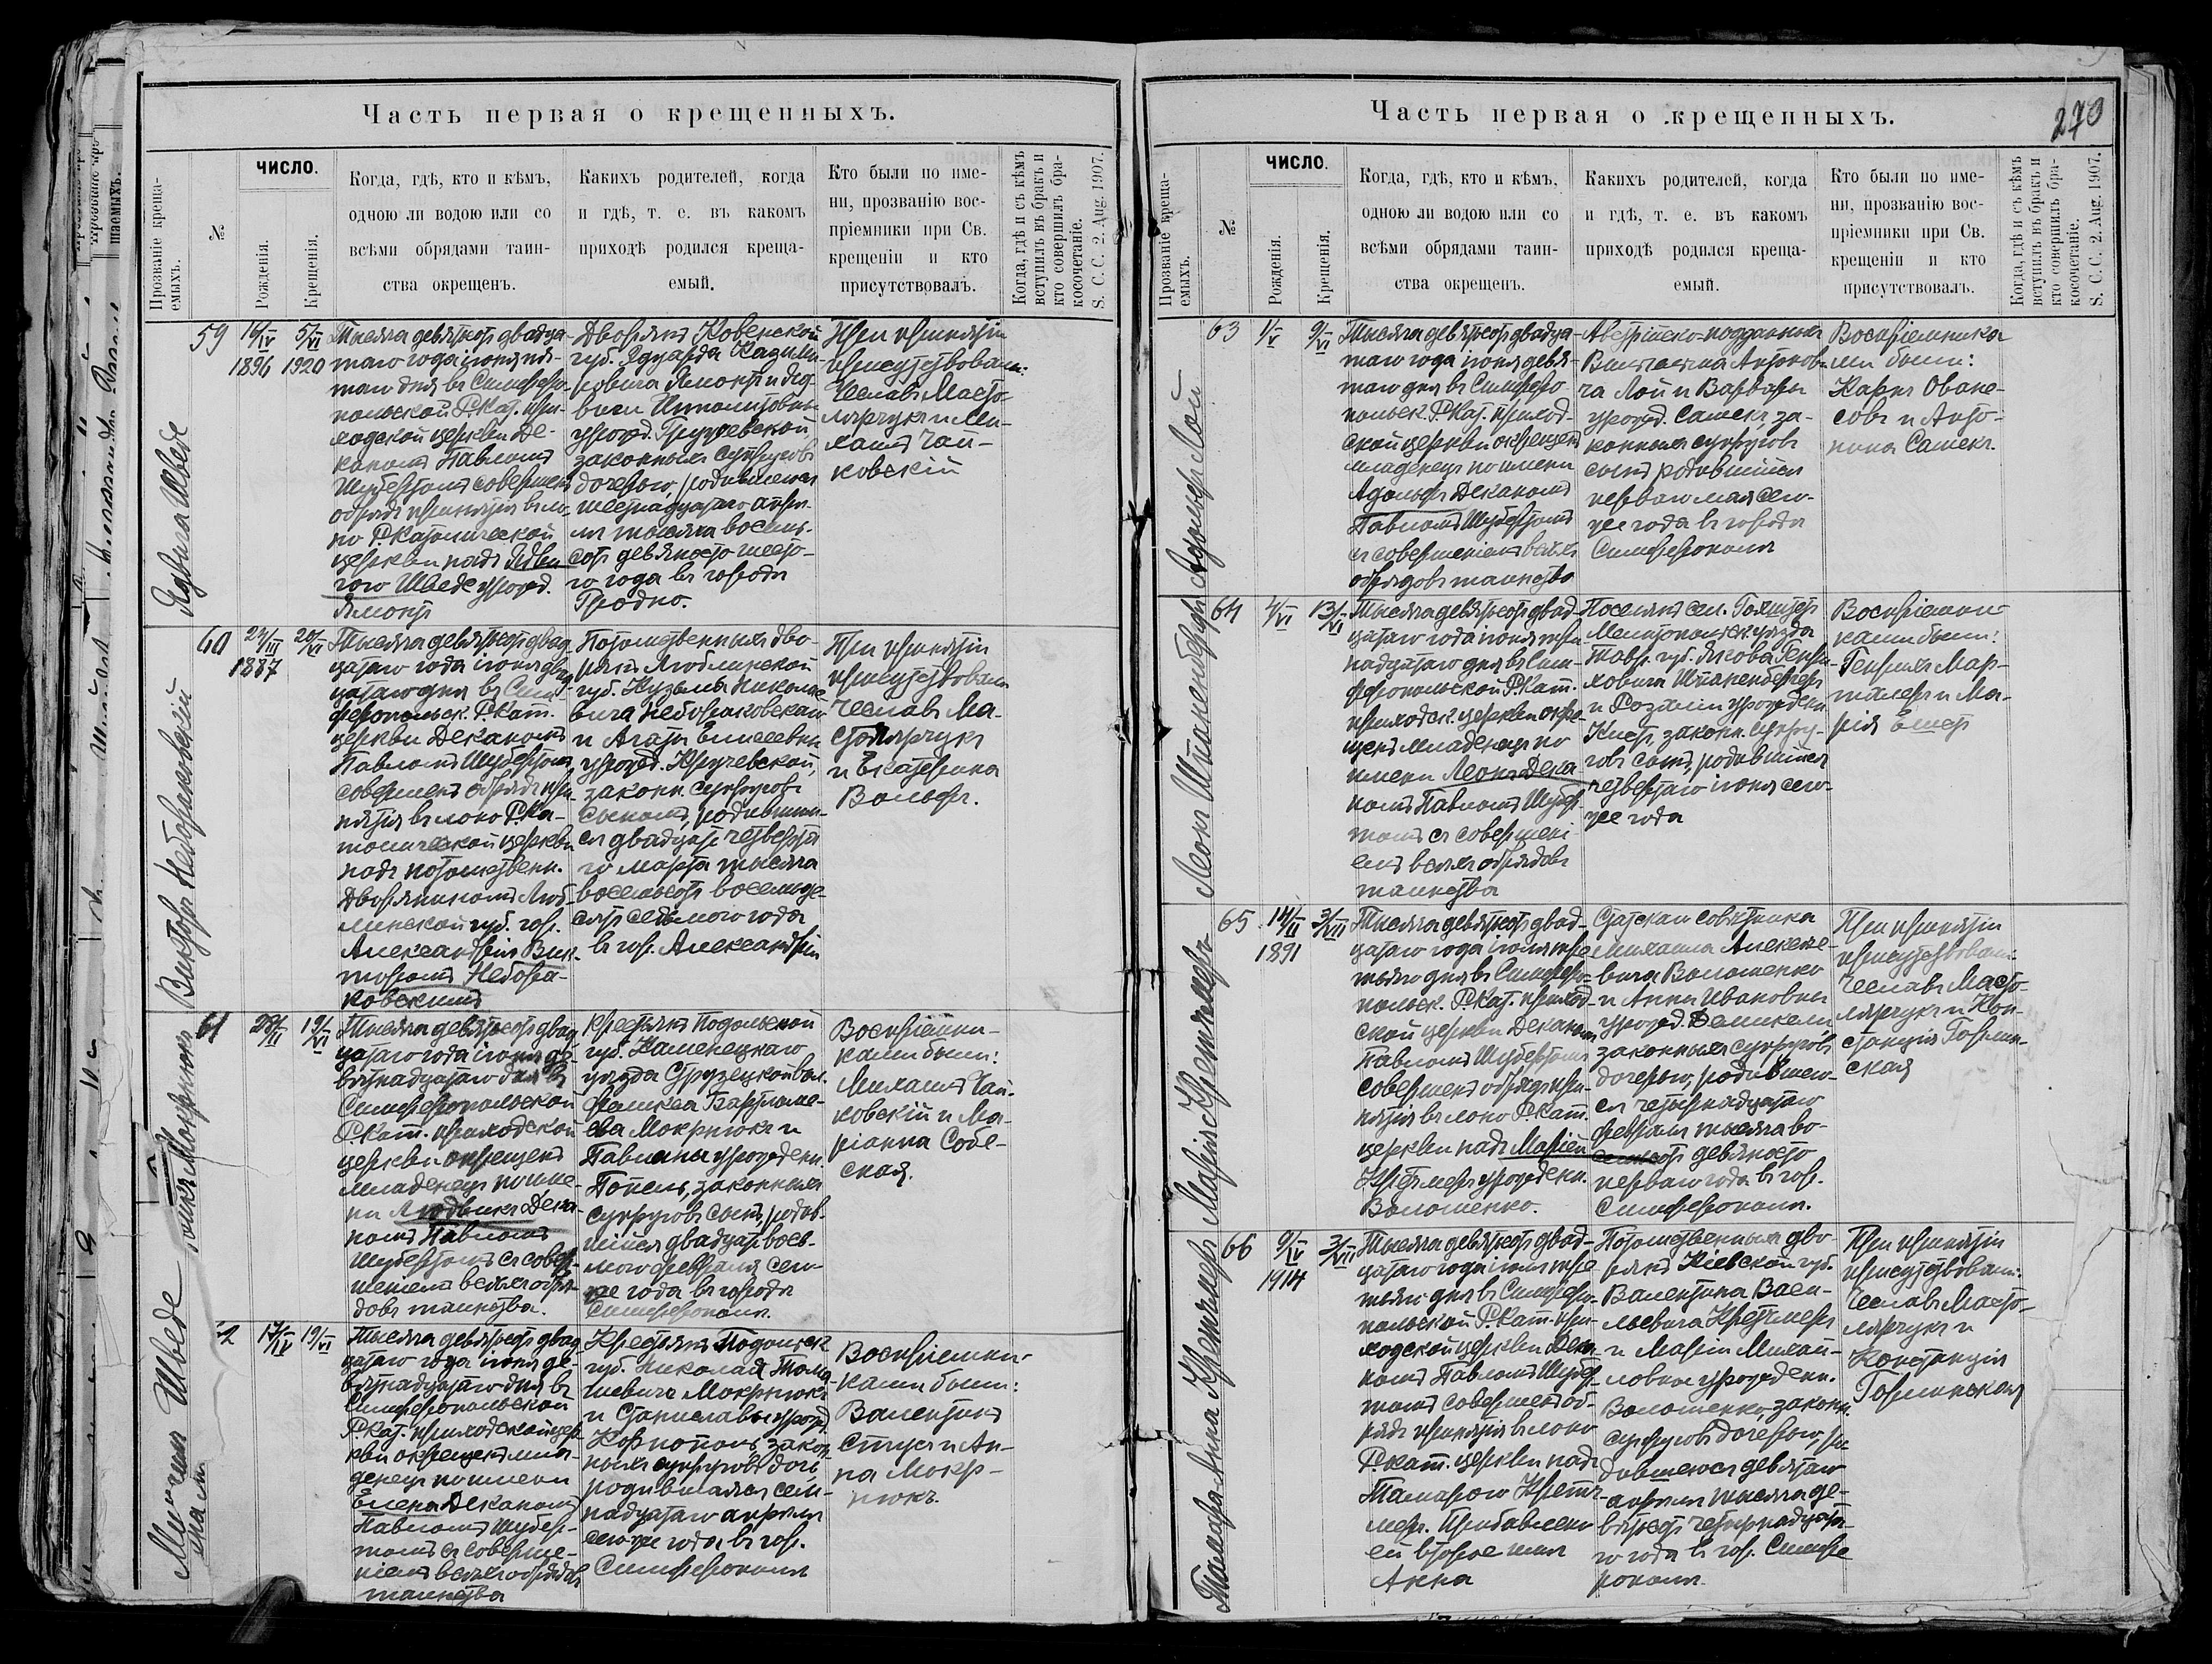 Часть первая о крещенныхъ.
Прозваніе креща-
емыхъ.
№
ЧИСЛО.
Рожденія.
Крещенія.
Когда, гдѣ, кто и кѣмъ,
одною ли водою или со
всѣми обрядами таин-
ства окрещенъ.
Какихъ родителей, когда
и гдѣ, т. е. въ какомъ
приходѣ родился креща-
емый.
Кто были по име-
ни, прозванію вос-
пріемники при Св.
крещеніи и кто
присутствовалъ.
Когда, гдѣ и съ кѣмъ
вступилъ въ бракъ и
кто совершилъ бра-
косочетаніе.
S. C. C. 2. Aug. 1907.
Ядвига Шведе
59
16/IV
1896
5/VI
1920
Тысяча девятьсотъ двадца-
таго года іюня пя-
таго дня въ Симферо-
польской Р.Кат. при-
ходской церкви Де-
каномъ Павломъ
Шубертомъ совершенъ
обрядъ принятія въ ло-
но Р.Католической
церкви надъ Ядви-
гою Шведе урожд.
Ямонтъ
Дворянъ Ковенской
губ. Эдуарда Казими-
ровича Ямонтъ и Яд-
виги Ипполитовны
урожд. Гружевской
законныхъ супруговъ
дочерью, родившеюся
шестнадцатаго апрѣ-
ля тысяча восемь-
сотъ девяносто шесто-
го года въ городѣ
Гродно.
При принятіи
присутствовали:
Чеславъ Масто-
лярчукъ и Ми-
хаилъ Чай-
ковскій
Викторъ Небораковскій
60
24/III
1887
20/VI
Тысяча девятьсотъ двад-
цатаго года іюня двад-
цатаго дня въ Сим-
феропольск. Р.Кат.
церкви Деканомъ
Павломъ Шубертомъ
совершенъ обрядъ при-
нятія въ лоно Р.Ка-
толической церкви
надъ потомственн.
Дворяниномъ Люб-
линской губ. гор.
Александріи Вик-
торомъ Небора-
ковскимъ
Потомственныхъ дво-
рянъ Люблинской
губ. Кузьмы Николае-
вича Небораковскаго
и Агаты Елисеевны
урожд. Кручевской,
законн. супруговъ
сыномъ, родившим-
ся двадцать четверта-
го марта тысяча
восемьсотъ восемьде-
сятъ седьмого года
въ гор. Александріи
При принятіи
присутствовали
Чеславъ Ма-
столярчукъ
и Екатерина
Вольфъ.
Мокрнюкъ
61
28/II
19/VI
Тысяча девятьсотъ двад-
цатаго года іюня де-
вятнадцатаго дня въ
Симферопольской
Р.Кат. приходской
церкви окрещенъ
младенецъ по име-
ни Людвикъ Дека-
номъ Павломъ
Шубертомъ съ совер-
шеніемъ всѣхъ обря-
довъ таинства.
Крестьянъ Подольской
губ. Каменецкаго
уѣзда Струзецкой вол.
Феликса Бартломе-
ева Мокрнюкъ и
Павлины урожденн.
Попель, законныхъ
супруговъ сынъ, родив-
шійся двадцать вось-
мого февраля сего-
же года въ городѣ
Симферополѣ.
Воспріемни-
ками были:
Михаилъ Чай-
ковскій и Ма-
ріанна Собе-
ская.
Шведе
17/IV
19/VI
Тысяча девятьсотъ двад-
цатаго года іюня де-
вятнадцатаго дня въ
Симферопольской
Р.Кат. приходской цер-
кви окрещенъ мла-
денецъ по имени
Елена Деканомъ
Павломъ Шубер-
томъ съ соверше-
ніемъ всѣхъ обрядовъ
таинства
Крестьянъ Подольск.
губ. Николая Тома-
шевича Мокрнюкъ
и Станиславы урожд.
Корнопель, закон-
ныхъ супруговъ дочь
родившаяся сем-
надцатаго апрѣля
сего же года въ гор.
Симферополѣ
Воспріемни-
ками были:
Валентинъ
Спусъ и Ан-
на Мокр-
нюкъ.
Часть первая о крещенныхъ.
270
Прозваніе креща-
емыхъ.
№
ЧИСЛО.
Рожденія.
Крещенія.
Когда, гдѣ, кто и кѣмъ,
одною ли водою или со
всѣми обрядами таин-
ства окрещенъ.
Какихъ родителей, когда
и гдѣ, т. е. въ какомъ
приходѣ родился креща-
емый.
Кто были по име-
ни, прозванію вос-
пріемники при Св.
крещеніи и кто
присутствовалъ.
Когда, гдѣ и съ кѣмъ
вступилъ въ бракъ и
кто совершилъ бра-
косочетаніе.
S. C. C. 2. Aug. 1907.
Адольфъ Лой
63
1/V
9/VI
Тысяча девятьсотъ двадца-
таго года іюня девя-
таго дня въ Симферо-
польск. Р.Кат. приход-
ской церкви окрещенъ
младенецъ по имени
Адольфъ Деканомъ
Павломъ Шубертомъ
съ совершеніемъ всѣхъ
обрядовъ таинства
Австрійско-подданныхъ
Антонови-
ча Лой и Варвары
урожд. Сашекъ, за-
конныхъ супруговъ
сынъ родившійся
перваго мая сего-
же года въ городѣ
Симферополѣ
Воспріемника-
ми были:
Карпъ Оване-
совъ и Анто-
нина Сашекъ.
Леонъ Шпаненбергеръ
64
4/VI
13/VI
Тысяча девятьсотъ двад-
цатаго года іюня три-
надцатаго дня въ Сим-
феропольской Р.Кат.
приходск. церкви окре-
щенъ младенецъ по
имени Леонъ Дека-
номъ Павломъ Шубер-
томъ съ совершені-
емъ всѣхъ обрядовъ
таинства
Поселянъ сел.
Мелитопольск. уѣзда
Тавр. губ. Якова Генри-
ховича Шпаненбергеръ
и Розаліи урожденн.
Кистъ, законн. супру-
говъ сынъ, родившійся
четвертаго іюня сего
же года
Воспріемни-
ками были:
Генрихъ Мар-
тилеръ и Ма-
рія
Марія Кретчмеръ
65
14/II
1891
3/VII
Тысяча девятьсотъ двад-
цатаго года іюля тре-
тьяго дня въ Симферо-
польск. Р.Кат. приход-
ской церкви Деканомъ
Павломъ Шубертомъ
совершенъ обрядъ при-
нятія въ лоно Р.Кат.
церкви надъ Маріей
Кретчмеръ урожденн.
Волошенко.
Статскаго совѣтника
Михаила Алексѣе-
вича Волошенко
и Анны Ивановны
урожд.
законныхъ супруговъ
дочерью, родившею-
ся четырнадцатаго
февраля тысяча во-
семьсотъ девяносто
перваго года въ гор.
Симферополѣ.
При принятіи
присутствовали:
Чеславъ Масто-
лярчукъ и Кон-
станція Горлин-
ская
Тамара-Анна Кретчмеръ
66
9/IV
1914
3/VII
Тысяча девятьсотъ двад-
цатаго года іюля тре-
тьяго дня въ Симферо-
польской Р.Кат. при-
ходской церкви Дека-
номъ Павломъ Шубер-
томъ совершенъ об-
рядъ принятія въ лоно
Р.Кат. церкви надъ
Тамарою Кретч-
меръ. Прибавлено
ей второе имя
Анна
Потомственныхъ дво-
рянъ Кіевской губ.
Валентина Васи-
льевича Кретчмеръ
и Маріи Михай-
ловны урожденн.
Волошенко, законн.
супруговъ дочерью, ро-
дившеюся девятаго
апрѣля тысяча де-
вятьсотъ четырнадцата-
го года въ гор. Симфе-
рополѣ.
При принятіи
присутствовали:
Чеславъ Масто-
лярчукъ и
Констанція
Горлинская